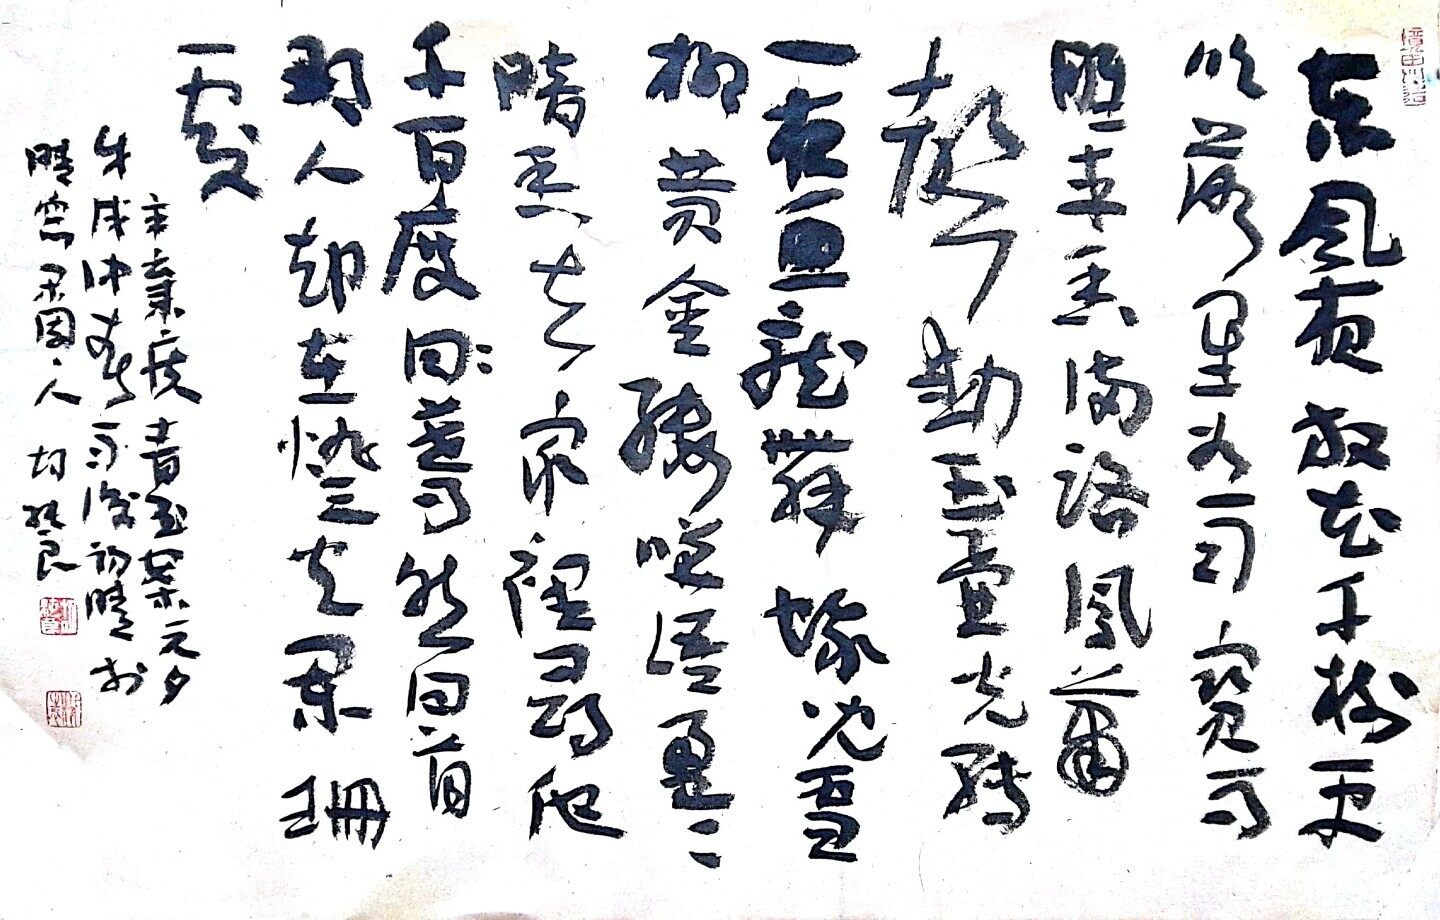 東風夜放花千樹更
吹落星如雨寶馬
雕車香滿路鳳簫
聲動玉壺光轉
一夜魚龍舞蛾兒雪
柳黃金縷笑語盈〻
暗香去眾裡尋他
千百度回驀然回首
那人卻在燈火闌珊
處
辛棄疾青玉案元夕
戊戌仲春雨後初晴於
晴窗 人 良